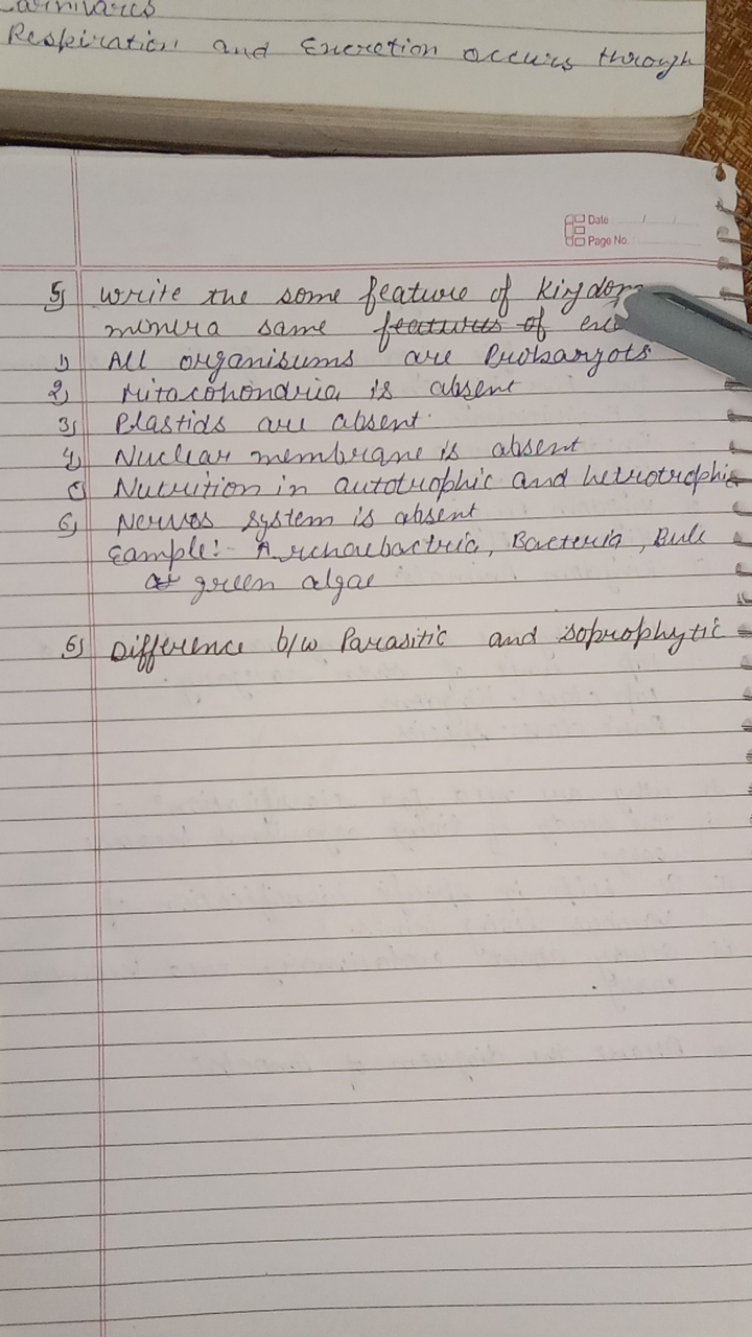 Carnivares
Respiration and Excretion occurs through
Date / /
Page No.
5) write the some feature of kigdom
monera same features of
1) All organisums are Prokaryots
2) Mitocohondria is absent
3) Plastids are absent.
4) Nuclear membrane is absent
5) Nutrition in autotrophic and hetrotrophic
6) Nerves system is absent
Eample:- Archaebactria, Bacteria, Bule
green algae
6) Difference b/w Parasitic and soprophytic